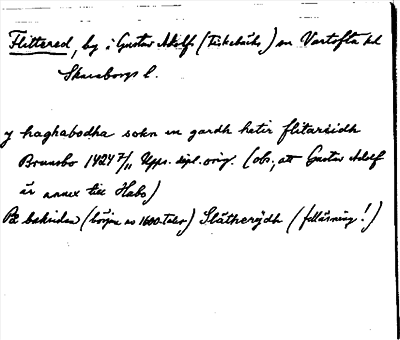 Flittered, by i Gustav Adolfs (Fiskebäcks) sn Vartofta hd
Skaraborgs l.
J haghabodha sokn en gardh hetir flitariidh
Brunsbo 1424 7/11 Upps. dipl. orig. (obs., att Gustav Adolf
är annex till Habo)
På baksidan (början av 1600-talet) Slätherydh (felläsning!)